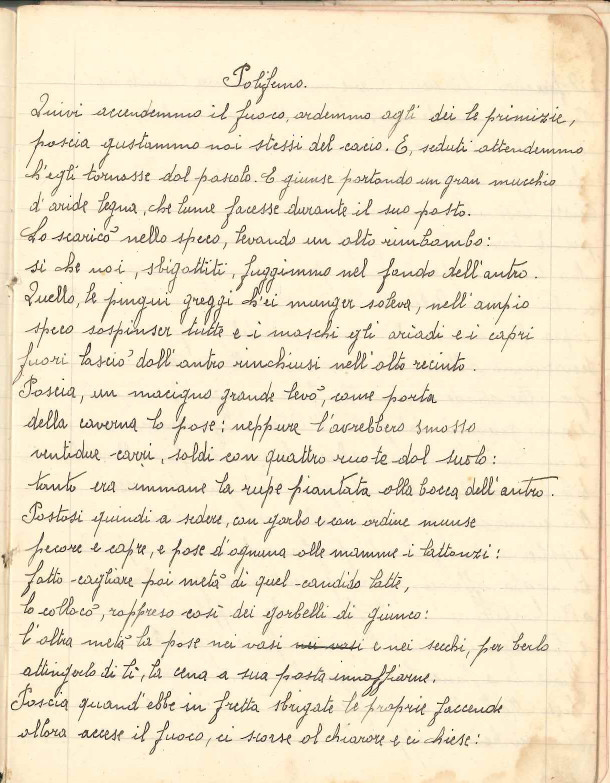 Polifemo.
Quivi accendemmo il fuoco, ardemmo agli dei le primizie,
poscia gustammo noi stessi del cacio. E, seduti attendemmo
ch'egli tornasse dal pascolo. E giunse portando un gran mucchio
d'aride legna, che lume facesse durante il suo pasto.
Lo scaricò nello speco, levando un alto rimbombo:
si che noi, sbigottiti, fuggimmo nel fondo dell'antro.
Quello, le pingui greggi ch'ei munger soleva, nell'ampio
speco sospinser tutte e i maschi gli ariadi e i capri
fuori lasciò dall'antro rinchiusi nell'alto recinto.
Poscia, un macigno grande levò, come porta
della caverna lo pose: neppure l'avrebbero smosso
ventidue carri, soldi con quattro ruote dal suolo:
tanto era immane la rupe piantata alla bocca dell'antro.
Postosi quindi a sedere, con garbo e con ordine munse
pecore e capre, e pose d'ognuna alle mamme i lattonzi:
fatto cagliare poi metà di quel candido latte,
lo collocò, rappreso così dei gorbelli di giunco:
l'altra metà la pose nei vasi nei vasi e nei secchi, per berlo
attingerlo di lì, la cena a sua posta innaffiarne.
Poscia quand'ebbe in fretta sbrigate le proprie faccende
allora accese il fuoco, ci scorse al chiarore e ci chiese: